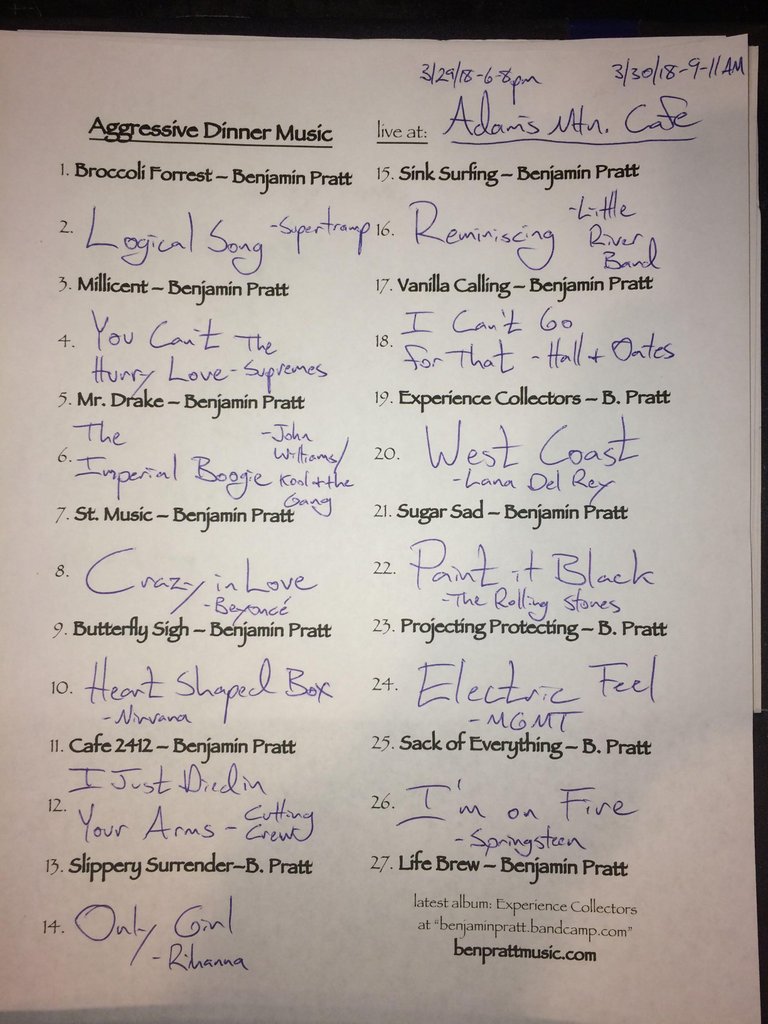 3/29/18-6-8pm 3/30/18-9-11AM
Aggressive Dinner Music live at: Adam's Mtn. Cafe
1. Broccoli Forrest – Benjamin Pratt
2. Logical Song -Supertramp
3. Millicent – Benjamin Pratt
4. You Can't The
Hurry Love - Supremes
5. Mr. Drake – Benjamin Pratt
6. The
Imperial Boogie -John
Williams/
Kool + the
Gang
7. St. Music – Benjamin Pratt
8. Crazy in Love
-Beyoncé
9. Butterfly Sigh – Benjamin Pratt
10. Heart Shaped Box
-Nirvana
11. Cafe 2412 – Benjamin Pratt
12. I Just Died in
Your Arms - Cutting
Crew
13. Slippery Surrender–B. Pratt
14. Only Girl
-Rihanna
15. Sink Surfing – Benjamin Pratt
16. Reminiscing -Little
River
Band
17. Vanilla Calling – Benjamin Pratt
18. I Can't Go
for That - Hall + Oates
19. Experience Collectors – B. Pratt
20. West Coast
-Lana Del Rey
21. Sugar Sad – Benjamin Pratt
22. Paint it Black
-The Rolling Stones
23. Projecting Protecting – B. Pratt
24. Electric Feel
-MGMT
25. Sack of Everything – B. Pratt
26. I'm on Fire
-Springsteen
27. Life Brew – Benjamin Pratt
latest album: Experience Collectors
at "benjaminpratt.bandcamp.com"
benprattmusic.com